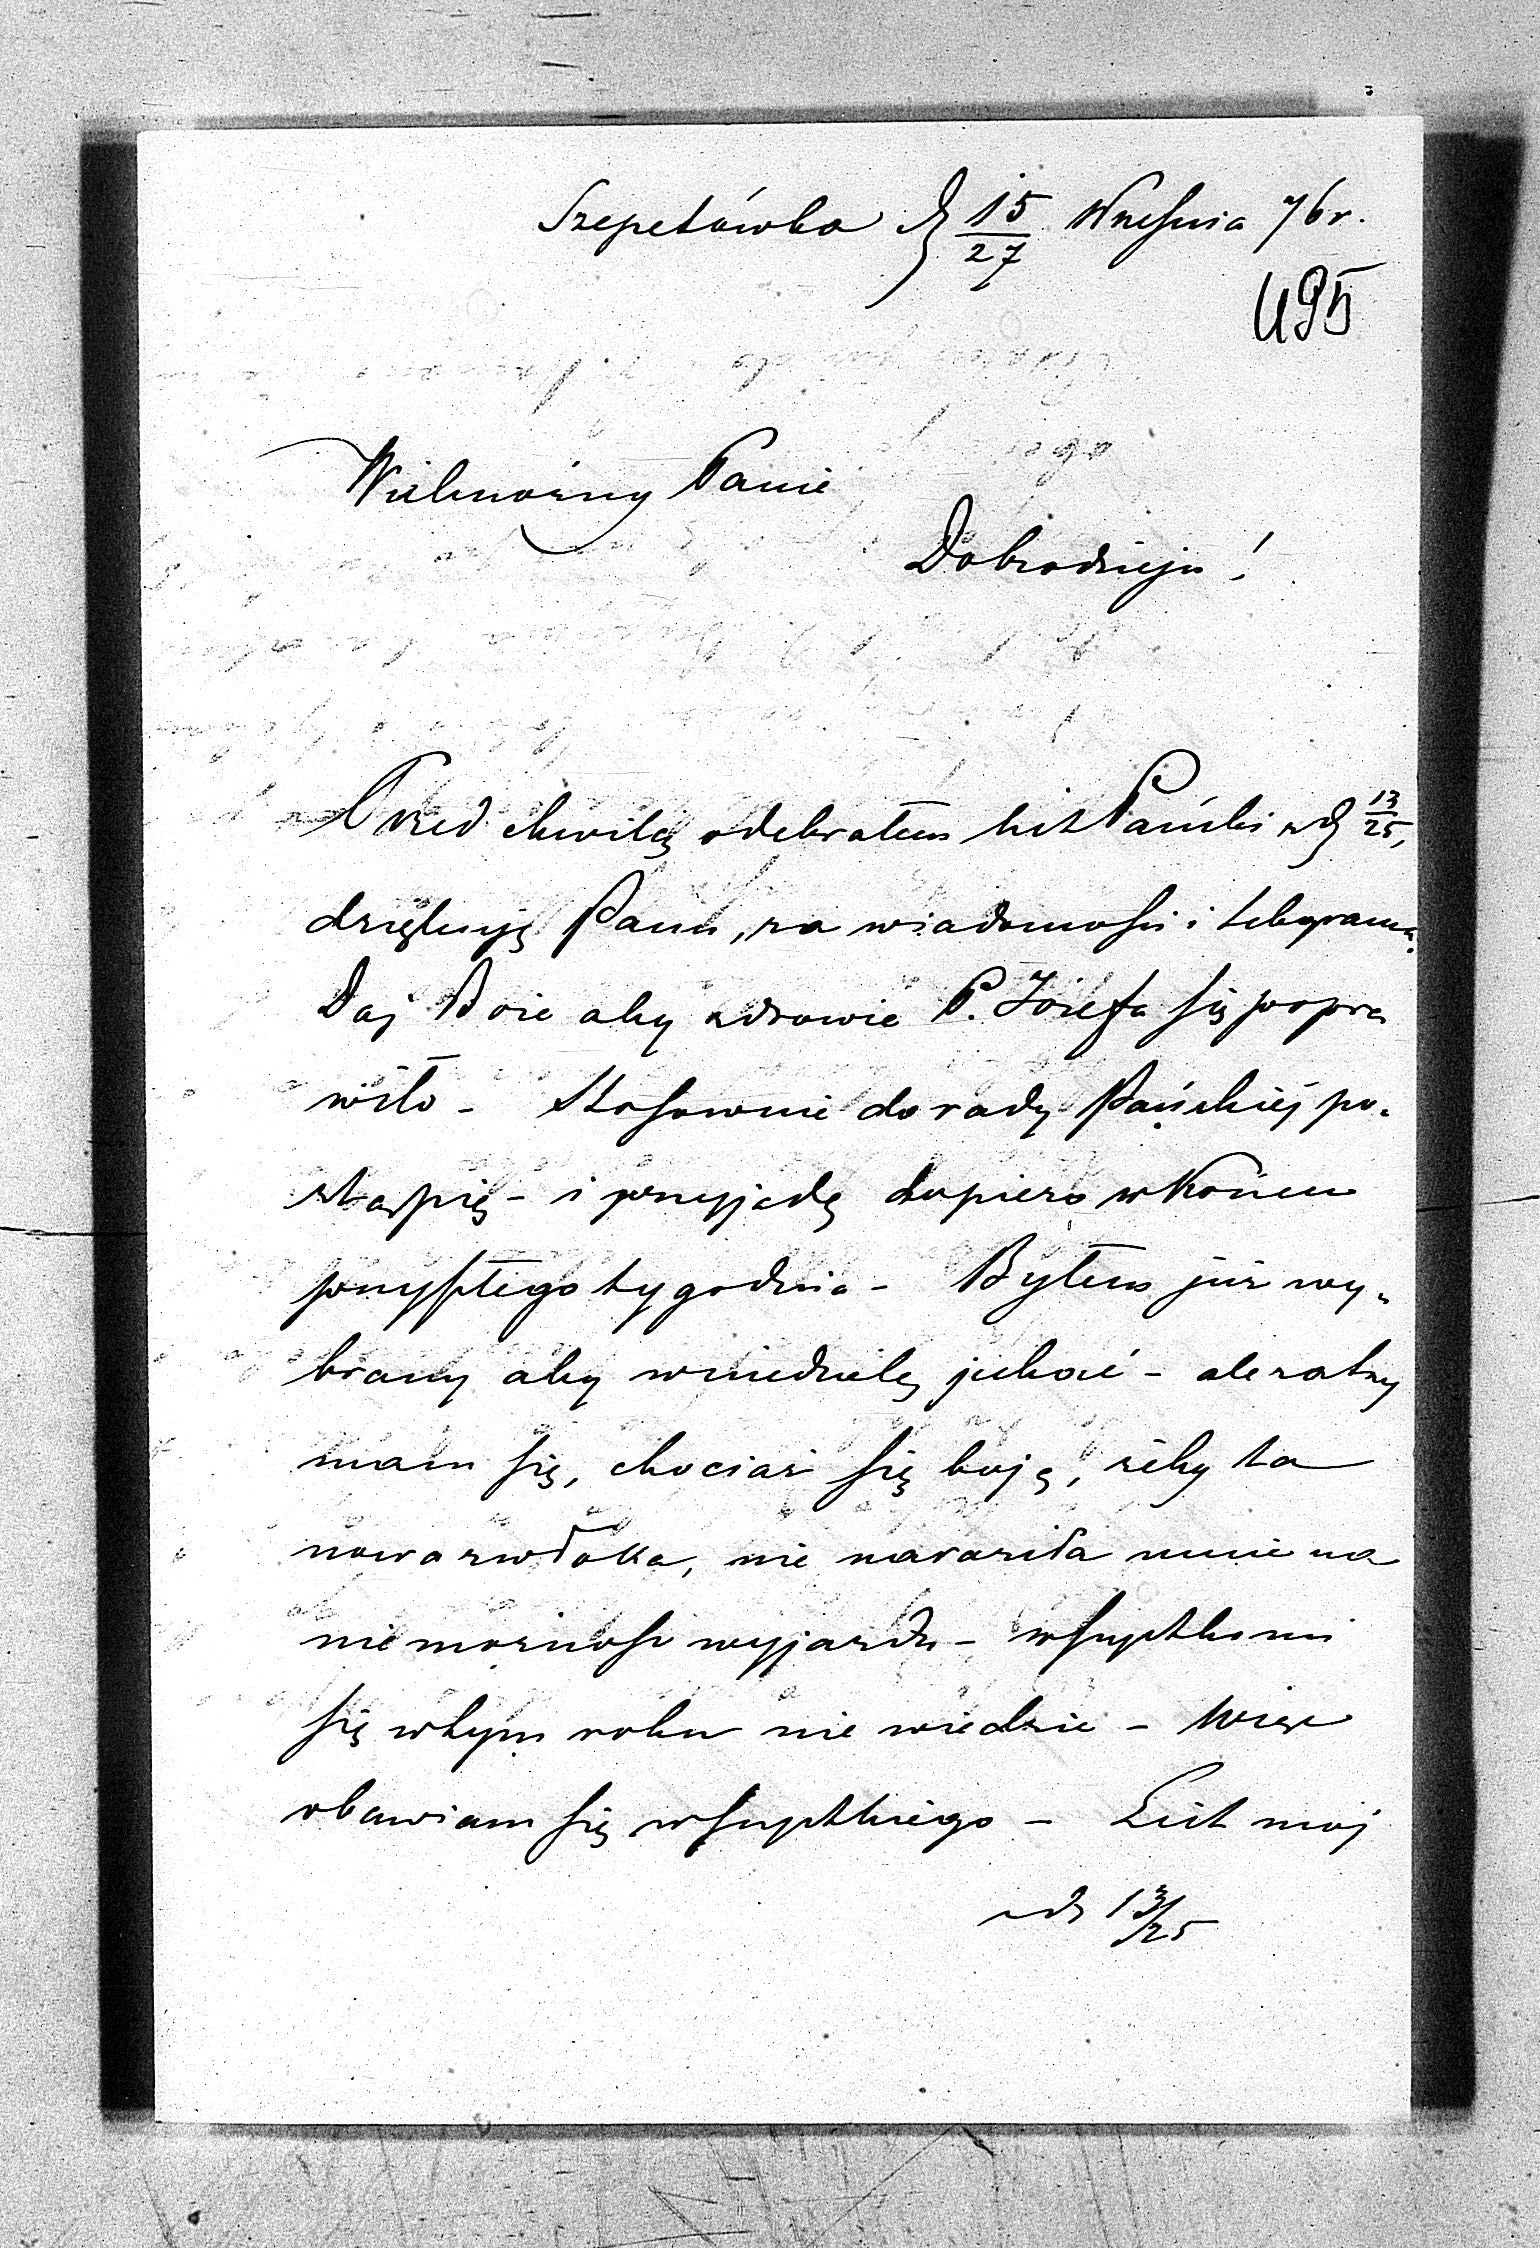 Szepetówka d 15/27 Września 76 r.
495
Wielmożny Panie
Dobrodzieju!
Przed chwilą odebrałem list Pański z d 13/25,
dziękuję Panu, za wiadomości i telegrama.
Daj Boże aby zdrowie P. Józefa się popra
wiło – Stosownie do rady Pańskiéj po-
stąpię – i przyjadę dopiero w końcu
przyszłego tygodnia – Byłem już wy-
brany aby w niedzielę jechać – ale zatrzy
mam się, chociaż się boję, żeby ta
nowa zwłoka, nie naraziła mnie na
niemożność wyjazdu – wszystko mi
się w tym roku nie wiedzie – więc
obawiam się wszystkiego – List mój
z d 13/25